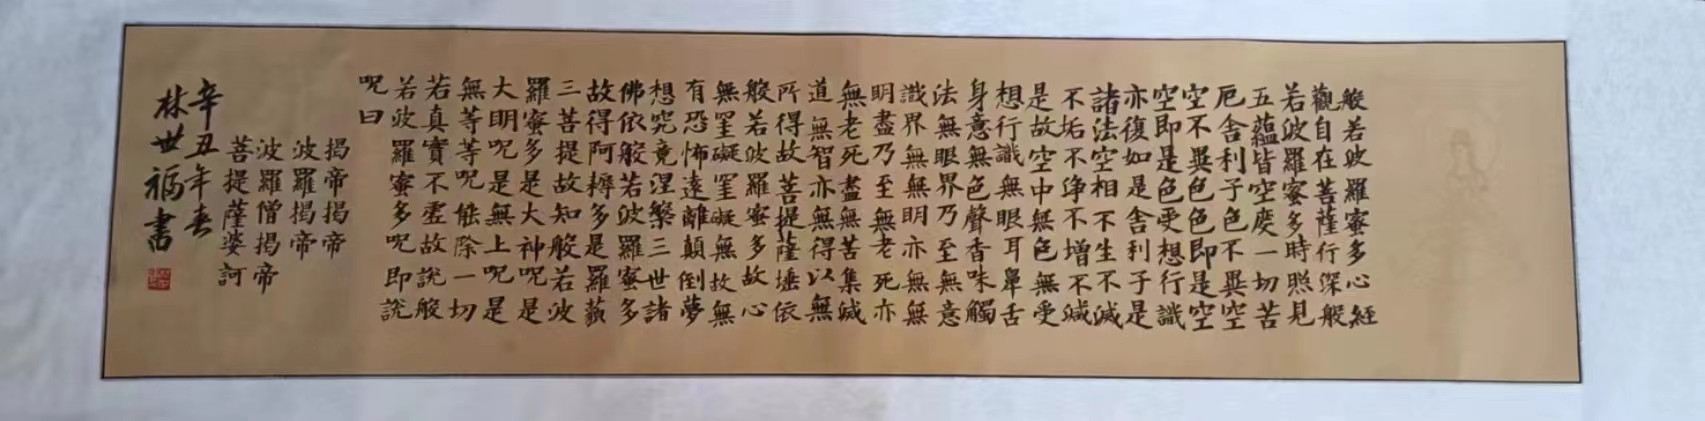 般若波羅蜜多心經
觀自在菩薩行深般
若波羅蜜多時照見
五蘊皆空度一切苦
厄舍利子色不異空
空不異色色即是空
空即是色受想行識
亦復如是舍利子是
諸法空相不生不滅
不垢不淨不增不減
是故空中無色無受
想行識無眼耳鼻舌
身意無色聲香味觸
法無眼界乃至無意
識界無無明亦無無
明盡乃至無老死亦
無老死盡無苦集滅
道無智亦無得以無
所得故菩提薩埵依
般若波羅蜜多故心
無罣礙罣礙無故無
有恐怖遠離顛倒夢
想究竟涅槃三世諸
佛依般若波羅蜜多
故得阿耨多是羅藐
三菩提故知般若波
羅蜜多是大神呪是
大明呪是無上呪是
無等等呪能除一切
若真實不虛故說般
若波羅蜜多呪即說
呪曰
揭帝揭帝
波羅揭帝
波羅僧揭帝
菩提薩婆訶
辛丑年春
林世福書